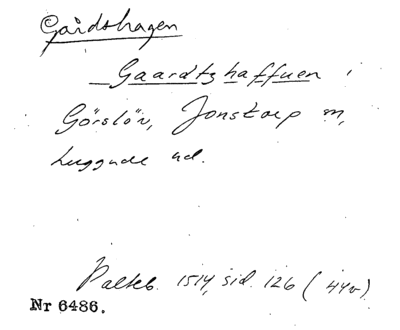 Gårdshagen
Gaardtzhaffuen i
Görslöv, Jonstorp m,
Luggude hd.
Palteb. 1514, sid. 126 (44v)
Nr 6486.